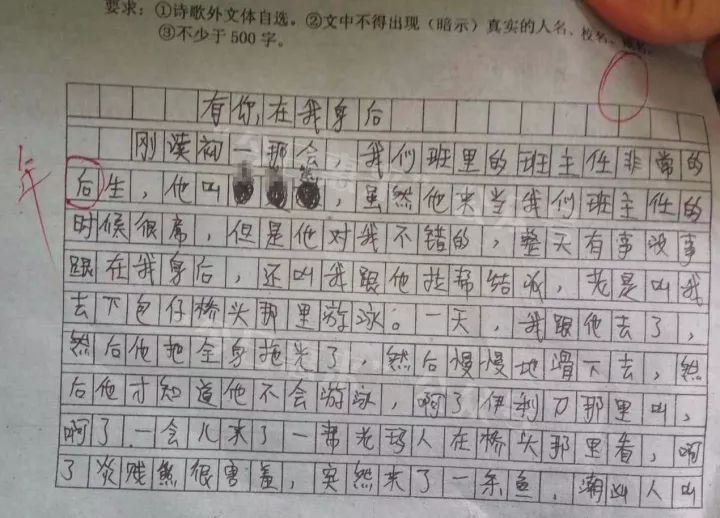 要求：①诗歌外文体自选。②文中不得出现（暗示）真实的人名、校名、
③不少于500字。
有你,在我身后
刚读初一那会，我们班里的班主任非常的
年
后生，他叫，虽然他来当我们班主任的
时候很席，但是他对我不错的，整天有事没事
跟在我身后，还叫我跟他拉帮结派，老是叫我
去下包仔桥头那里游泳。一天，我跟他去了，
然后他把全身拖光了，然后慢慢地滑下去，然
后他才知道他不会游泳，啊了伊利刀那里叫，
啊了一会儿来了一帮老玛人在桥头那里看，啊
了炎贱熊很害羞，突然来了一条鱼，潮凶人叫